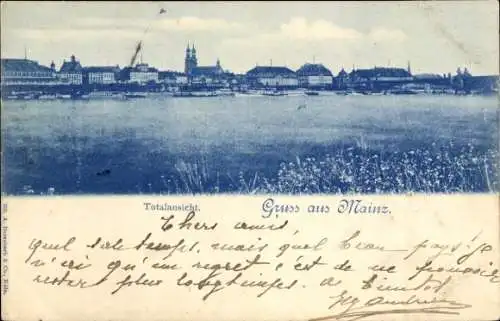 Totalansicht.
Gruss aus Mainz.
Chers amis
Quel sale temps, mais quel beau pays! Je
n'ai qu'un regret c'est de ne pouvoir
rester plus longtemps. A bientôt